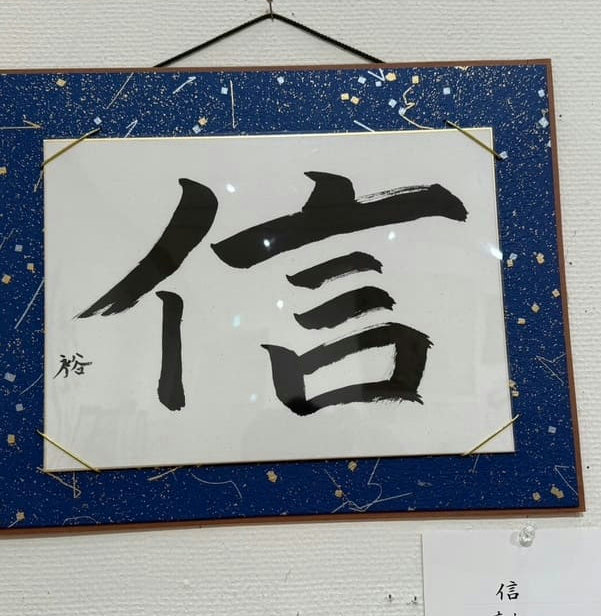 信
裕
信